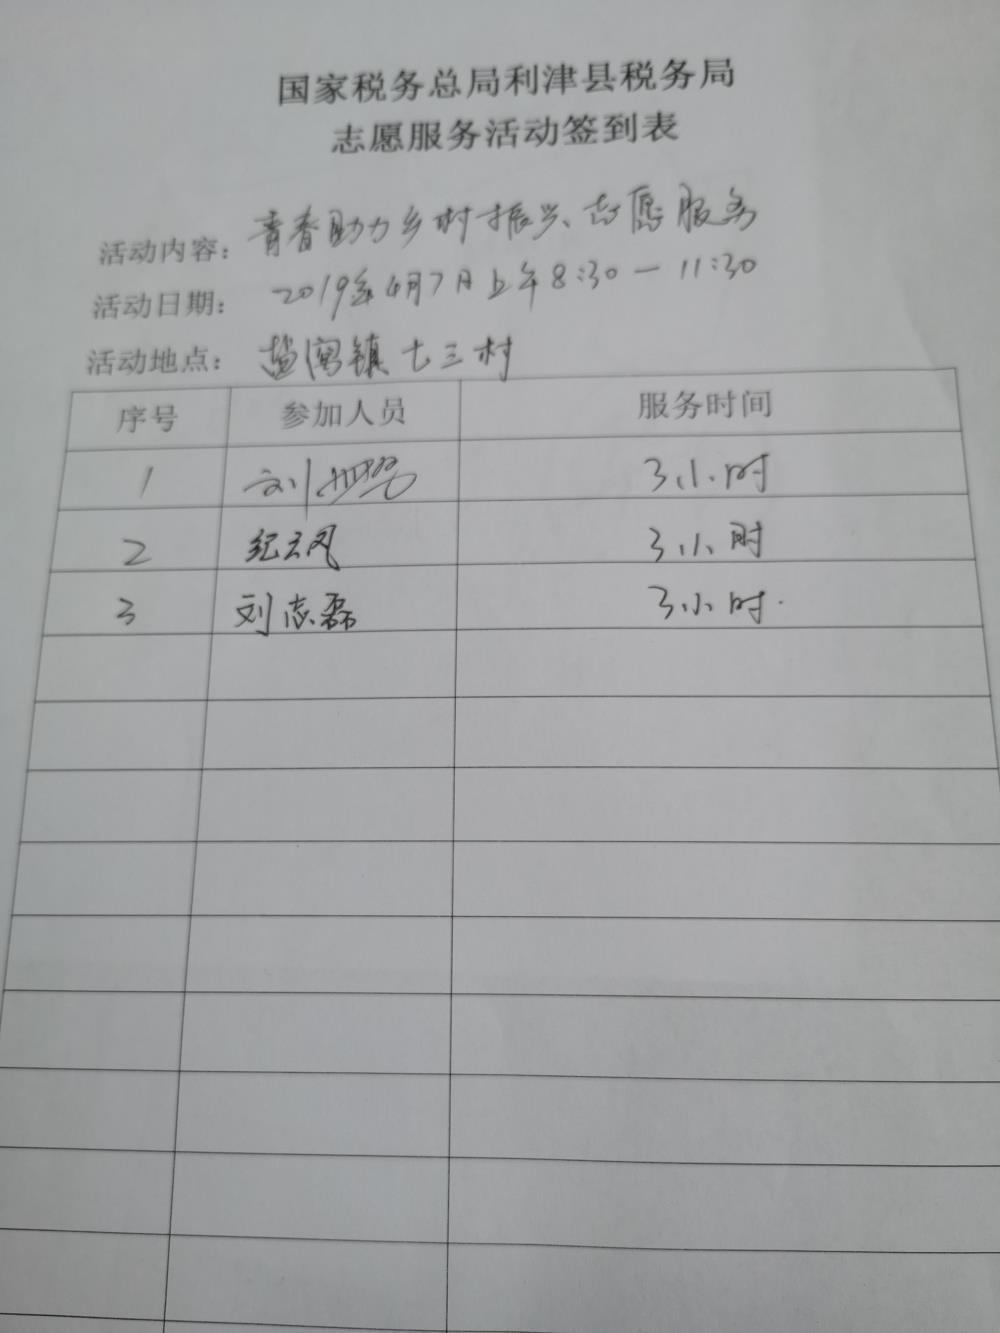 国家税务总局利津县税务局
志愿服务活动签到表
活动内容：青春助力乡村振兴、志愿服务
活动日期：2019年4月7日上午8:30—11:30
活动地点：盐窝镇七三村
序号 参加人员 服务时间
1 刘 3小时
2 纪云风 3小时
3 刘志磊 3小时.